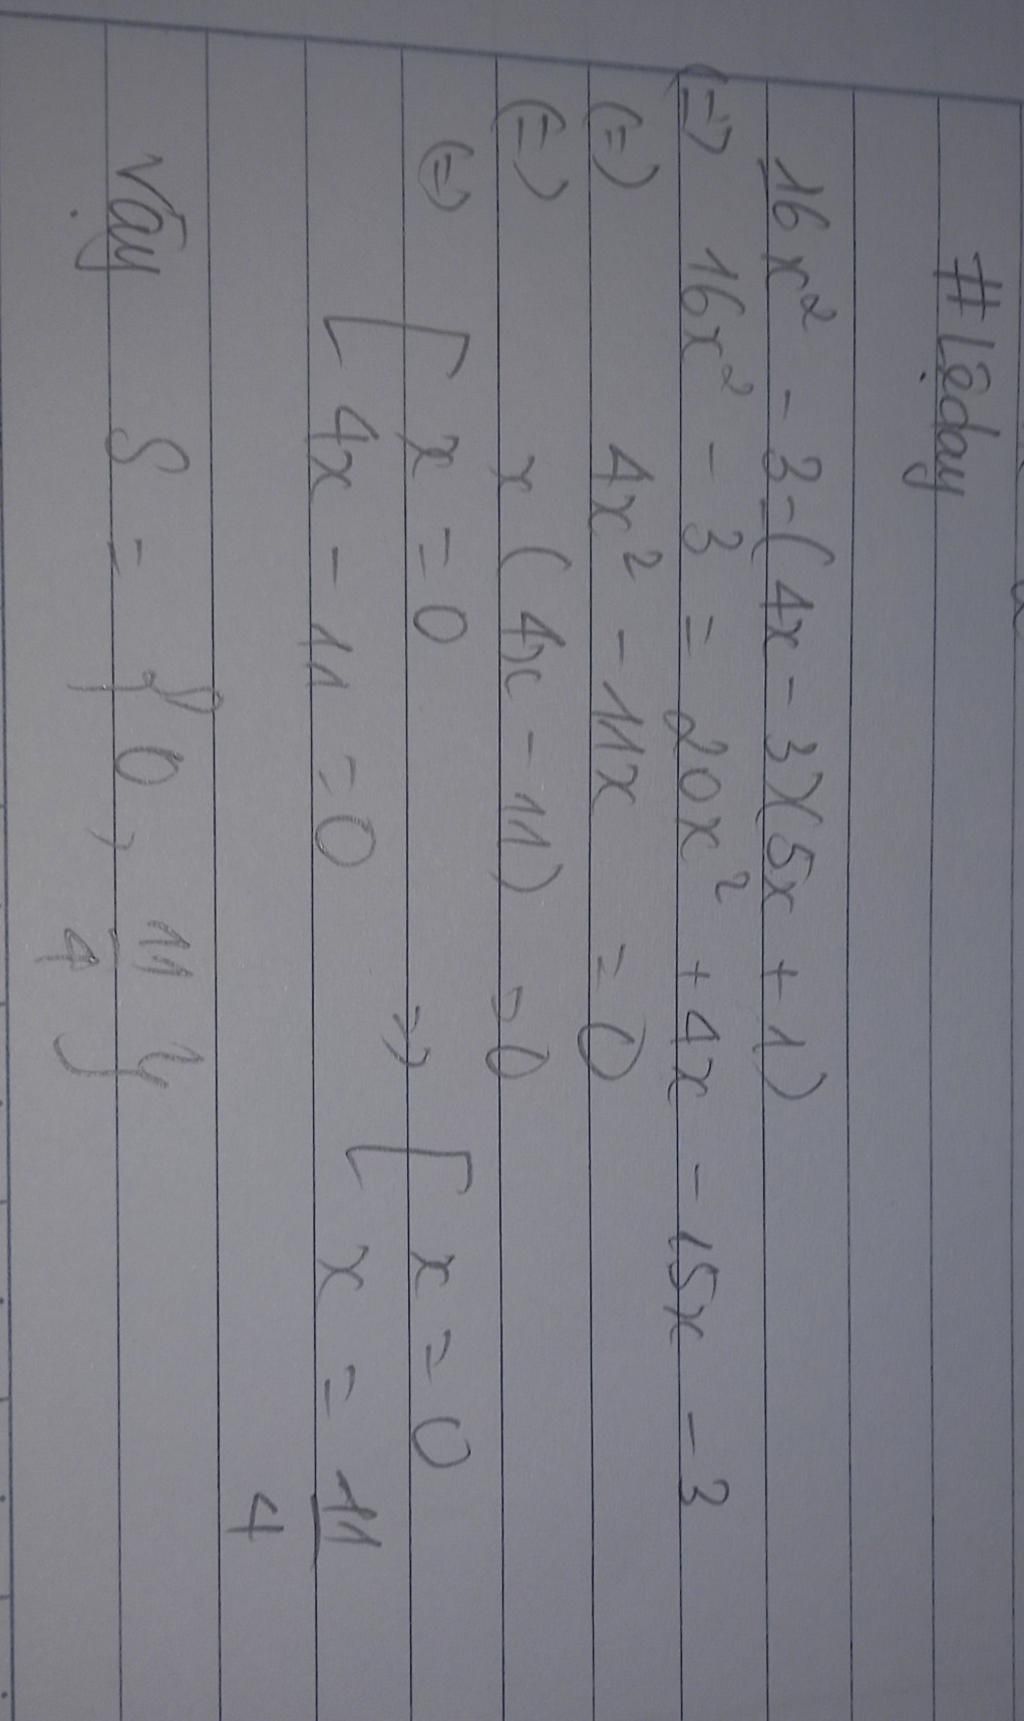 #Lệday
16x² - 3 = (4x - 3)(5x + 1)
(=) 16x² - 3 = 20x² + 4x - 15x - 3
(=) 4x² - 11x = 0
(=) x (4x - 11) = 0
(=) [ x = 0 => [ x = 0
4x - 11 = 0 x = 11/4
Vậy S = { 0, 11/4 }